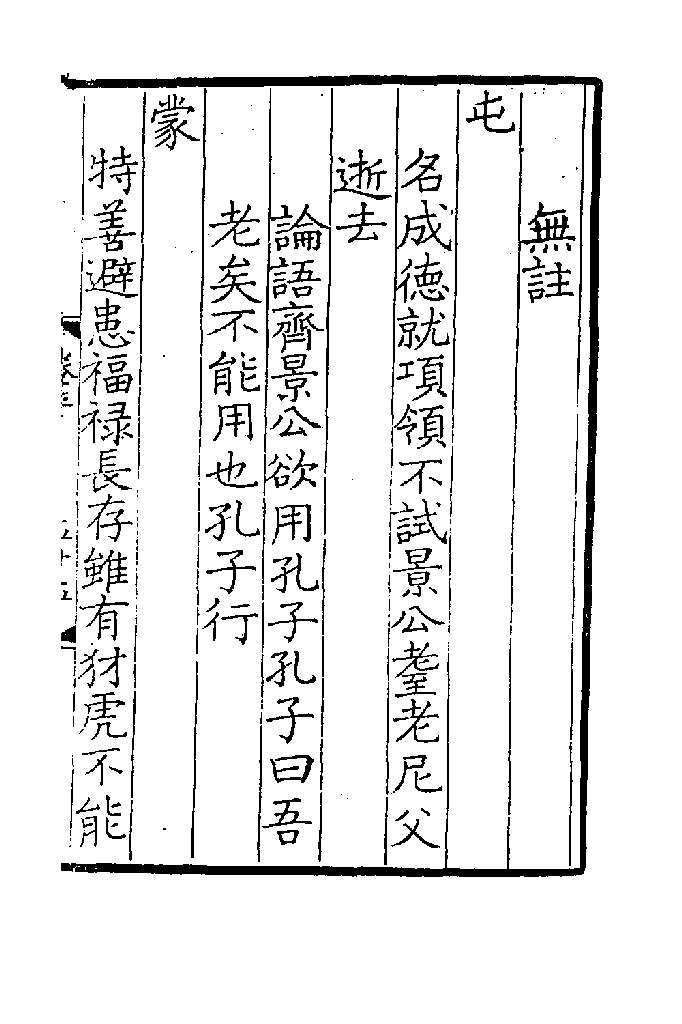 無註
屯
名成徳就項領不試景公耋老尼父
逝去
論語齊景公欲用孔子孔子曰吾
老矣不能用也孔子行
蒙
特善避患福禄長存雖有豺虎不能